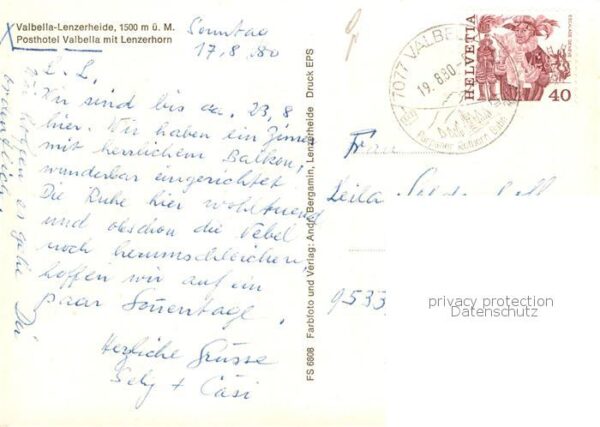 Valbella-Lenzerheide, 1500 m ü. M.
Posthotel Valbella mit Lenzerhorn
Sonntag
17.8.80
L. L.
Wir sind bis ca. 23.8
hier. Wir haben ein Zimmer
mit herrlichem Balkon,
wunderbar eingerichtet.
Die Ruhe hier wohltuend
und obschon die Nebel
noch herumschleichen,
hoffen wir auf ein
paar Sonnentage.
Herzliche Grüsse
+ Casi
Wir hoffen es gehe Dir
ordentlich.
FS 6608 Farbfoto und Verlag: Andr. Bergamin, Lenzerheide Druck EPS
7077 VALBE
19.8.80
HELVETIA
40
ESCALADE GENÈVE
Frau
Leila
9533
privacy protection
Datenschutz